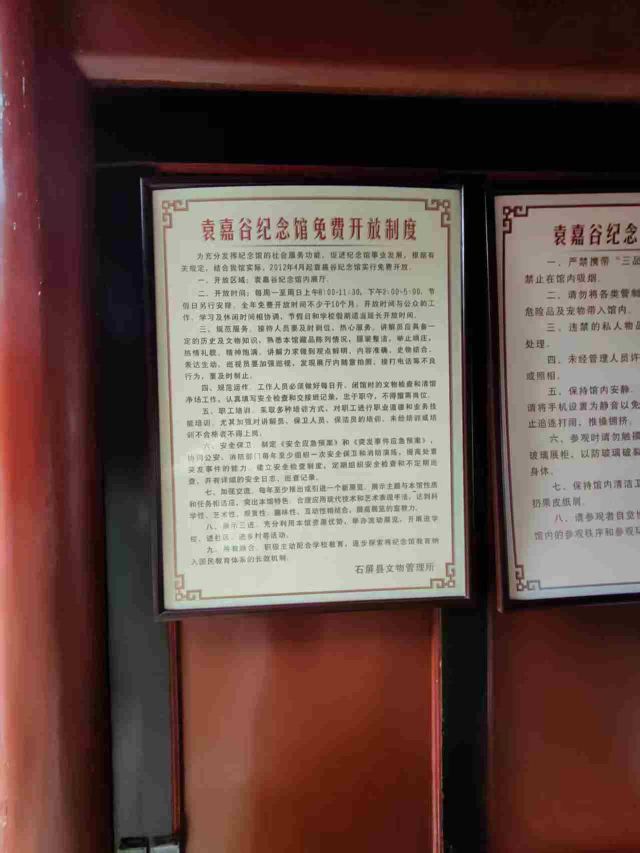 袁嘉谷纪念馆免费开放制度
为充分发挥纪念馆的社会服务功能，促进纪念馆事业发展，根据有
关规定，结合我馆实际，2012年4月起袁嘉谷纪念馆实行免费开放。
一、开放区域：袁嘉谷纪念馆内展厅。
二、开放时间：每周一至周日上午8:00-11:30，下午2:00-5:00，节
假日另行安排。全年免费开放时间不少于10个月，开放时间与公众的工
作、学习及休闲时间相协调，节假日和学校假期适当延长开放时间。
三、规范服务。接待人员要及时到位，热心服务。讲解员应具备一
定的历史及文物知识，熟悉本馆藏品陈列情况，服装整洁，举止端庄，
热情礼貌，精神饱满，讲解力求做到观点鲜明，内容准确，史物结合，
表达生动。巡视员要加强巡视，发现展厅内随意拍照，接打电话等不良
行为，要及时制止。
四、规范运作。工作人员必须做好每日开、闭馆时的文物检查和清馆
净场工作，认真填写安全检查和交接班记录，忠于职守，不得擅离岗位。
五、职工培训。采取多种培训方式，对职工进行职业道德和业务技
能培训，尤其加强对讲解员、保卫人员、保洁员的培训。未经培训或培
训不合格者不得上岗。
六、安全保卫。制定《安全应急预案》和《突发事件应急预案》，
协同公安、消防部门每年至少组织一次安全保卫和消防演练，提高处置
突发事件的能力。建立安全检查制度，定期组织安全检查和不定期巡
查，并有详细的安全日志、巡查记录。
七、加强交流。每年至少推出或引进一个新展览。展示主题与本馆性质
和任务相适应，突出本馆特色。合理应用现代技术和艺术表现手法，达到科
学性、艺术性、观赏性、趣味性、互动性相结合，提高展览的宣教力。
八、展示三进。充分利用本馆资源优势，举办流动展览，开展进学
校、进社区、进乡村等活动。
九、馆教融合。积极主动配合学校教育，逐步探索将纪念馆教育纳
入国民教育体系的长效机制。
石屏县文物管理所
袁嘉谷纪念
一、严禁携带“三品
禁止在馆内吸烟。
二、请勿将各类管制
危险品及宠物带入馆内。
三、违禁的私人物品
处理。
四、未经管理人员许
或照相。
五、保持馆内安静。
请将手机设置为静音以免
止追逐打闹，推搡拥挤。
六、参观时请勿触摸
玻璃展柜，以防玻璃破
身体。
七、保持馆内清洁卫
扔果皮纸屑。
八、请参观者自觉
馆内的参观秩序和参观环